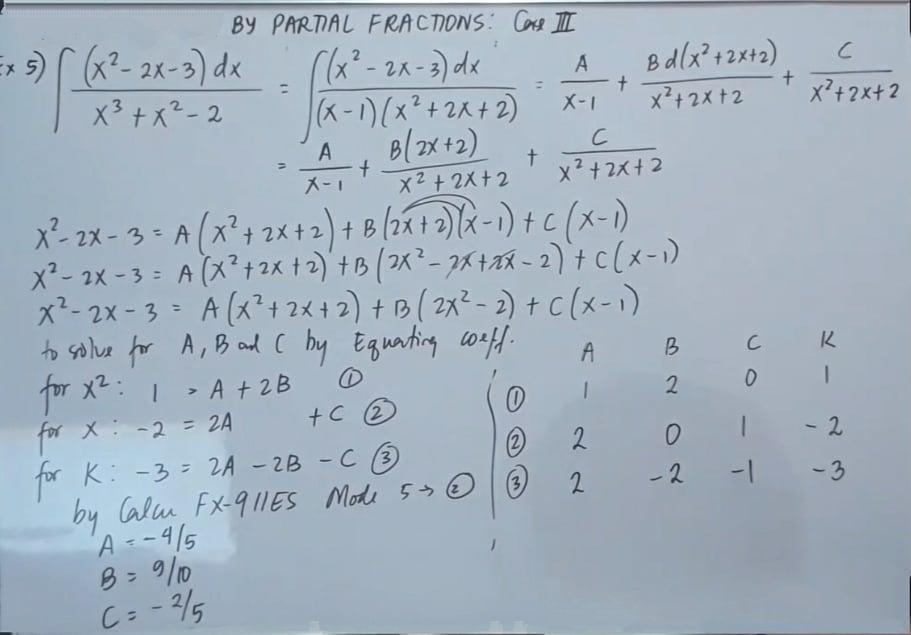 BY PARTIAL FRACTIONS: Case III
Ex 5) ∫ (x² - 2x - 3) dx / x³ + x² - 2 = ∫ (x² - 2x - 3) dx / (x-1)(x² + 2x + 2) = A / x-1 + B d(x² + 2x + 2) / x² + 2x + 2 + C / x² + 2x + 2
= A / x-1 + B(2x+2) / x² + 2x + 2 + C / x² + 2x + 2
x² - 2x - 3 = A(x² + 2x + 2) + B(2x+2)(x-1) + C(x-1)
x² - 2x - 3 = A(x² + 2x + 2) + B(2x² - 2x + 2x - 2) + C(x-1)
x² - 2x - 3 = A(x² + 2x + 2) + B(2x² - 2) + C(x-1)
to solve for A, B and C by Equating coeff.
A B C K
for x²: 1 = A + 2B ①
① 1 2 0 1
for x: -2 = 2A + C ②
② 2 0 1 -2
for K: -3 = 2A - 2B - C ③
③ 2 -2 -1 -3
by Calcu FX-911ES Mode 5 → ②
A = -4/5
B = 9/10
C = -2/5